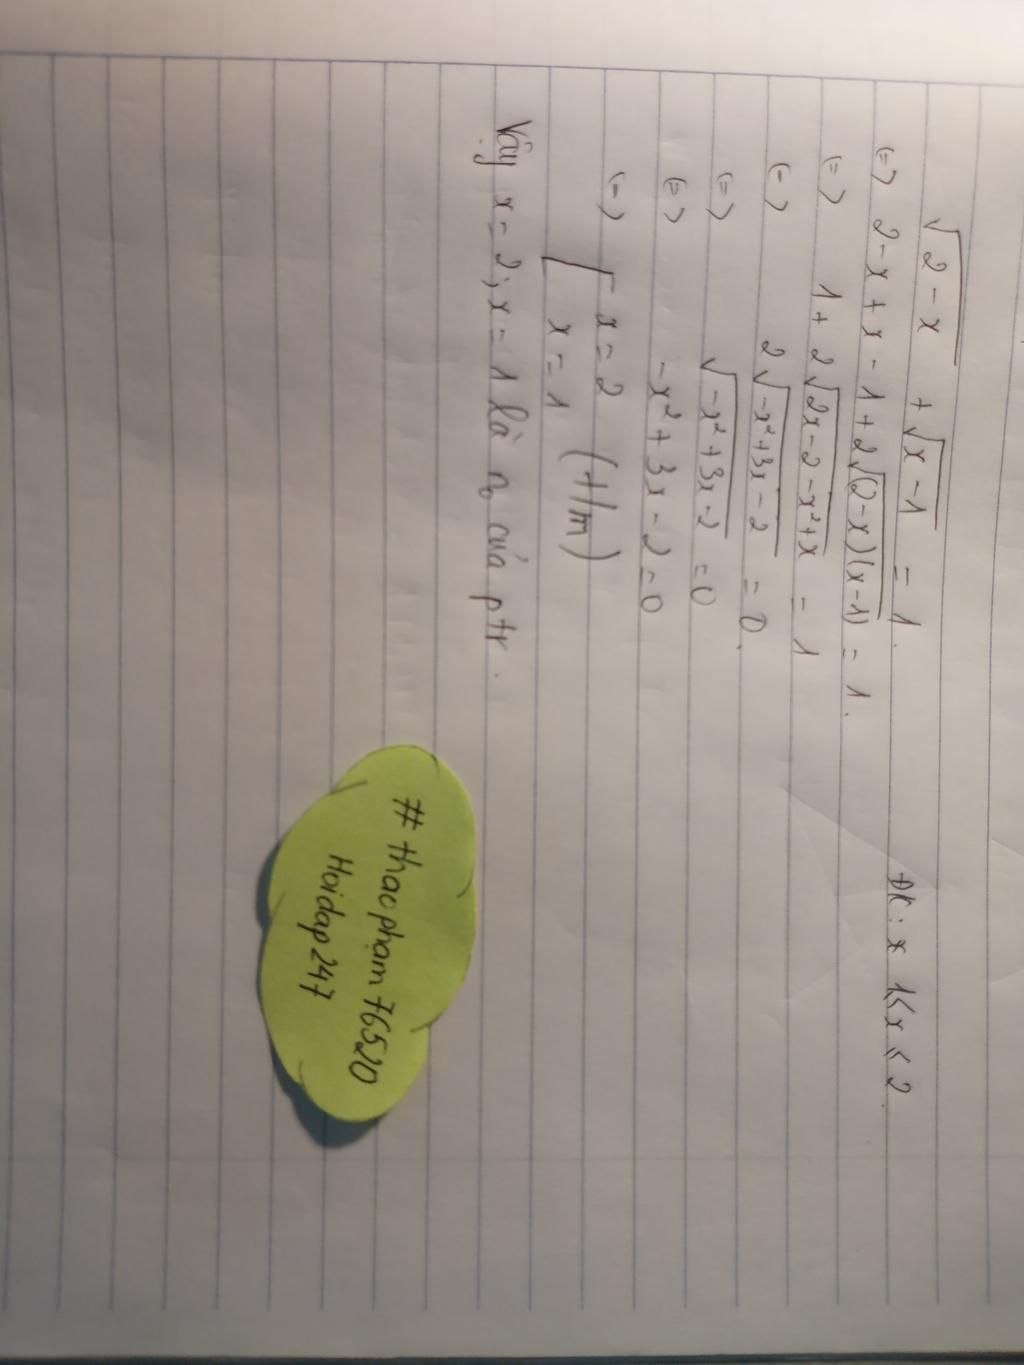 √(2-x) + √(x-1) = 1. ĐK: x 1≤x≤2.
(=) 2-x+x-1+2√((2-x)(x-1)) = 1.
(=) 1+2√(2x-2-x²+x) = 1
(=) 2√(-x²+3x-2) = 0.
(=) √(-x²+3x-2) = 0
(=) -x²+3x-2=0
(=) [ x=2
x=1 (t/m)
Vậy x=2; x=1 là n₀ của ptr.
# thaophạm76520
Hoidap247